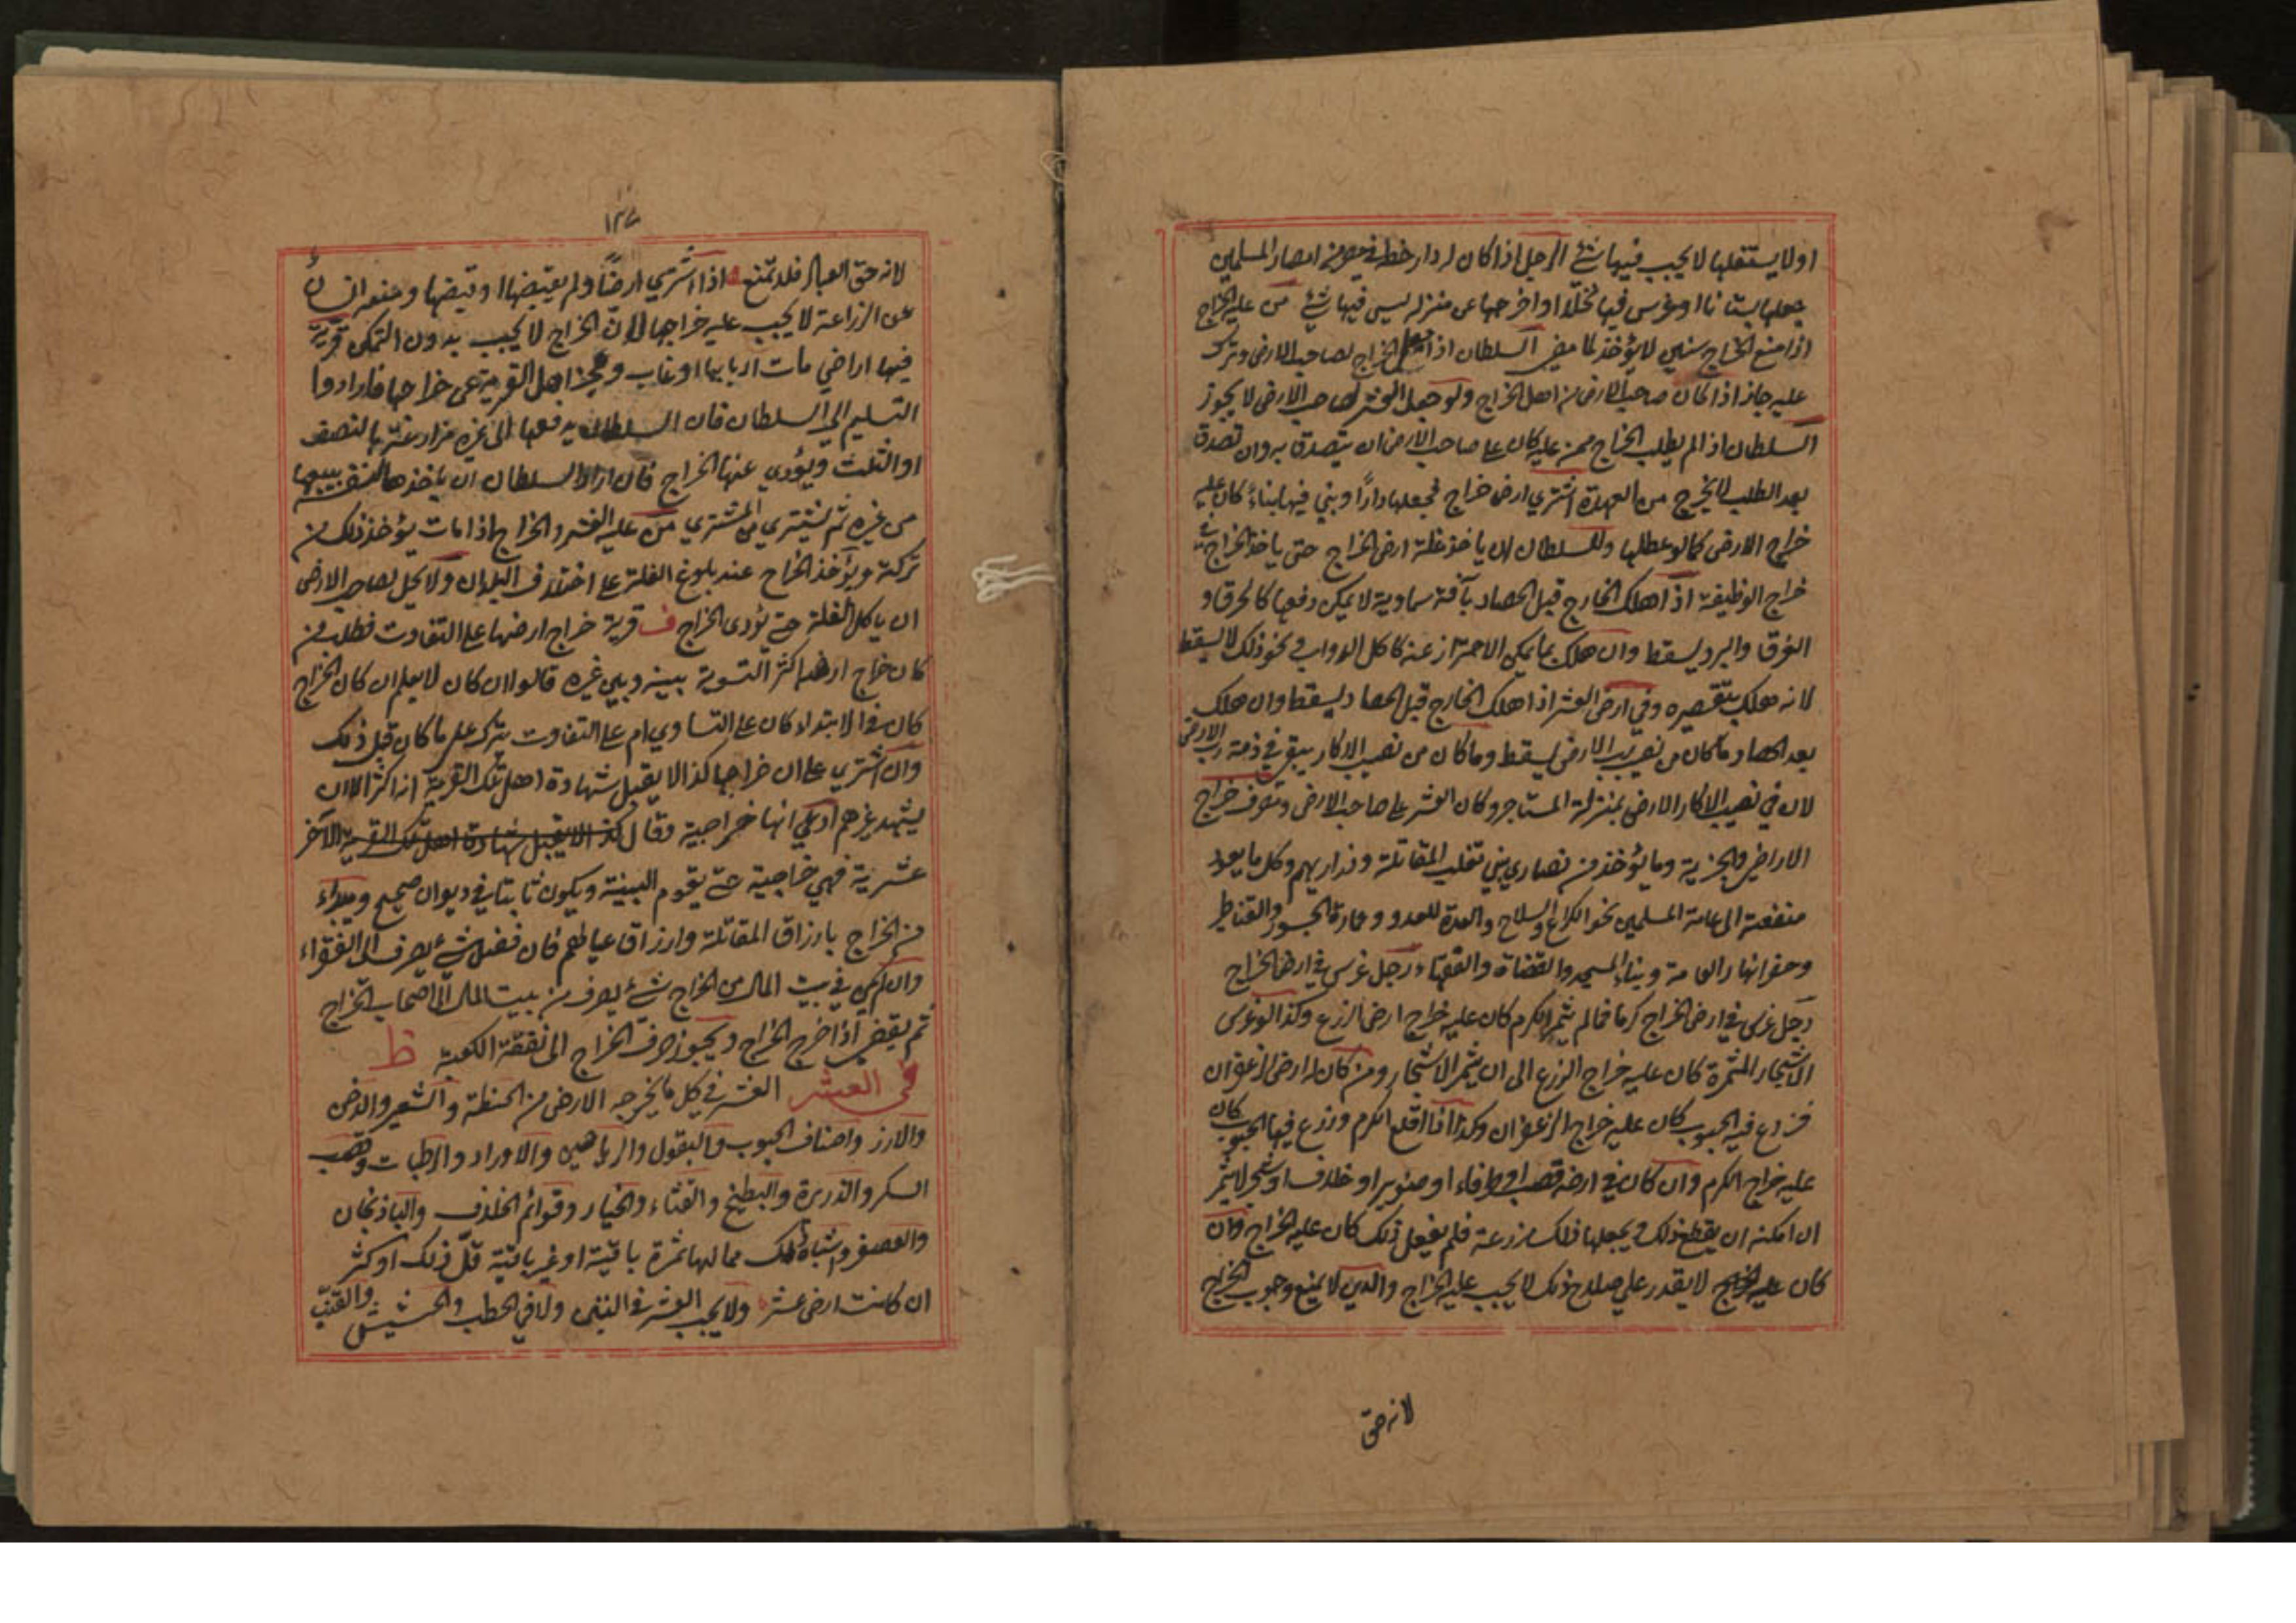 او لا يستغلها لا يجب فيها شئ الرجل اذا كان له دار خطة في مصر من امصار المسلمين
جعلها بستانا او غرس فيها نخلًا او اخرجها عن منزله ليس فيها شئ من عليه الخراج
اذا منع الخراج سنين لا يؤخذ لما مضى السلطان اذا جعل الخراج لصاحب الارض وترك
عليه جاز اذا كان صاحب الارض من اهل الخراج ولو جعل العشر لصاحب الارض لا يجوز
السلطان اذا لم يطلب الخراج ممن عليه كان على صاحب الارض ان يتصدق به وان تصدق
بعد الطلب لا يخرج من العهدة اشتري ارض خراج فجعلها دارًا وبني فيها بناءً كان عليه
خراج الارض كما لو عطلها وللسلطان ان ياخذ غلة ارض الخراج حتى ياخذ الخراج
خراج الوظيفة اذا هلك الخارج قبل الحصاد بآفة سماوية لا يمكن دفعها كالحرق و
الغرق والبرد يسقط وان هلك بما يمكن الاحتراز عنه كاكل الدواب ونحو ذلك لا يسقط
لانه هلك بتقصيره وفي ارض العشر اذا هلك الخارج قبل الحصاد يسقط وان هلك
بعد الحصاد ما كان من نصيب رب الارض يسقط وما كان من نصيب الاكار يبقى في ذمة رب الارض
لان في نصيب الاكار الارض بمنزلة المستاجر وكان العشر على صاحب الارض وتصرف خراج
الاراضي والجزية وما يؤخذ من نصاري بني تغلب المقاتلة وذراريهم وكل ما يعود
منفعته الى عامة المسلمين نحو الكراع والسلاح والعدة للعدو وعمارة الجسور والقناطر
وحفر انهار العامة وبناء المسجد والقضاة والفقهاء رجل غرس في ارض الخراج
رجل غرس في ارض الخراج كرما فما لم يثمر الكرم كان عليه خراج ارض الزرع وكذا لو غرس
الاشجار المثمرة كان عليه خراج الزرع الى ان يثمر الاشجار ومن كان له ارض الزعفران
فزرع فيه الحبوب كان عليه خراج الزعفران وكذا اذا اقلع الكرم وزرع فيها الحبوب كان
عليه خراج الكرم وان كان في ارضه قصب او طرفاء او صنوبر او خلاف او شجر لا يثمر
ان امكنه ان يقطع ذلك ويجعلها مزرعة فلم يفعل ذلك كان عليه الخراج وان
كان لا يقدر على صلاح ذلك لا يجب عليه الخراج والدين لا يمنع وجوب الخراج
لانه حق
١٣٧
لانه حق العباد فلا تمنع اذا اشتري ارضًا ولم يقبضها او قبضها ومنعه انسان
عن الزراعة لا يجب عليه خراجها لان الخراج لا يجب بدون التمكن قرية
فيها اراضي مات اربابها او غاب وعجز اهل القرية عن خراجها فارادوا
التسليم الى السلطان فان السلطان يدفعها الى غيره مزارعة بالنصف
او الثلث ويؤدي عنها الخراج فان اراد السلطان ان ياخذها لنفسه يبيعها
من غيره ثم يشتري من المشتري من عليه العشر والخراج اذا مات يؤخذ ذلك من
تركته ويؤخذ الخراج عند بلوغ الغلة على اختلاف البلدان ولا يحل لصاحب الارض
ان ياكل الغلة حتى يؤدى الخراج ف قرية خراج ارضها على التفاوت فطلب من
كان خراج ارضه اكثر التسوية بينه وبين غيره قالوا ان كان لا يعلم ان كان الخراج
كان في الابتداء كان على التساوي ام على التفاوت يترك على ما كان قبل ذلك
وان اشتري على ان خراجها كذا لا يقبل شهادة اهل تلك القرية انه اكثر الا ان
يشهد غيرهم ادعى انها خراجية وقال كذا لا يقبل شهادة اهل تلك القرية الآخر
عشرية فهي خراجية حتى يقوم البينة ويكون ثابتا في ديوان صحيح ويبداء
من الخراج بارزاق المقاتلة وارزاق عيالهم فان فضل شئ يصرف الى الفقراء
وان لم يكن في بيت المال من الخراج شئ يصرف من بيت المال الى اصحاب الخراج
ثم يقضى اذا خرج الخراج ويجوز صرف الخراج الى نفقة الكعبة ط
في العشر العشر في كل ما يخرجه الارض من الحنطة والشعير والدخن
والارز واصناف الحبوب والبقول والرياحين والاوراد والرطبات وقصب
السكر والذريرة والبطيخ والقثاء والخيار وقوائم الخلاف والباذنجان
والعصفر واشباه ذلك مما لها ثمرة باقية او غير باقية قلّ ذلك او كثر
ان كانت ارض عشر ولا يجب العشر في التبن ولا في الحطب والحشيش والقنّب